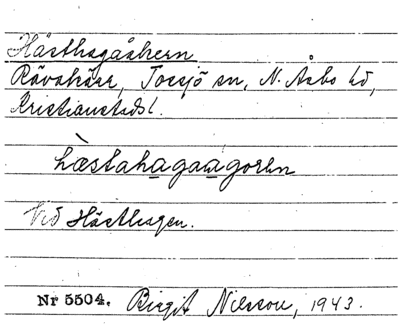 Hästhagaåkern
Rävahäss, Tossjö sn, N. Åsbo hd,
Kristianstads l.
hæstahagaagorln
Vid Hästhagen.
Nr 5504. Birgit Nilsson, 1943.